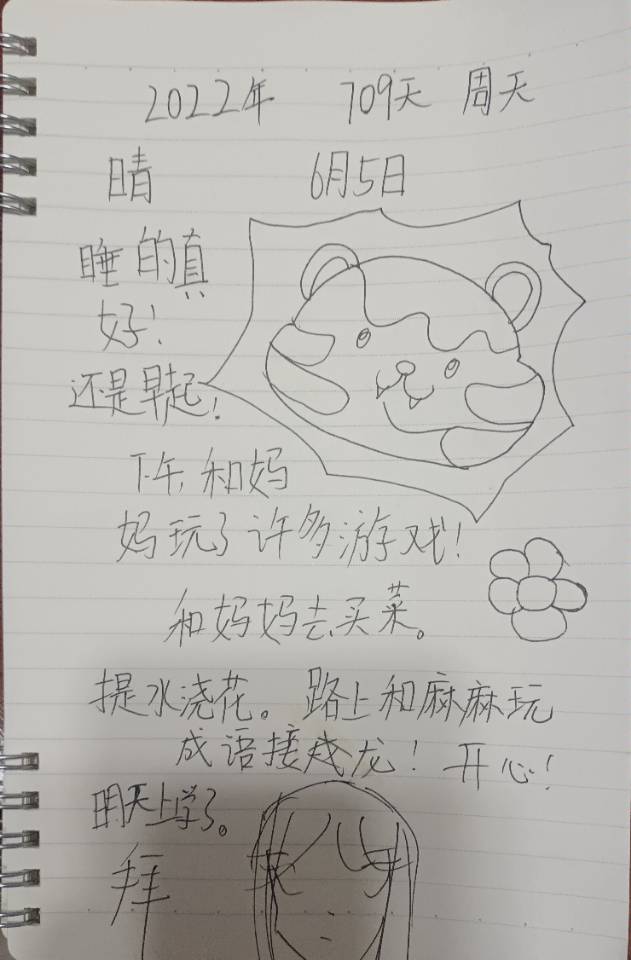 2022年 709天 周天
晴 6月5日
睡的真
好!
还是早起!
下午, 和妈
妈玩了许多游戏!
和妈妈去买菜。
提水浇花。路上和麻麻玩
成语接龙! 开心!
明天上学了。
拜